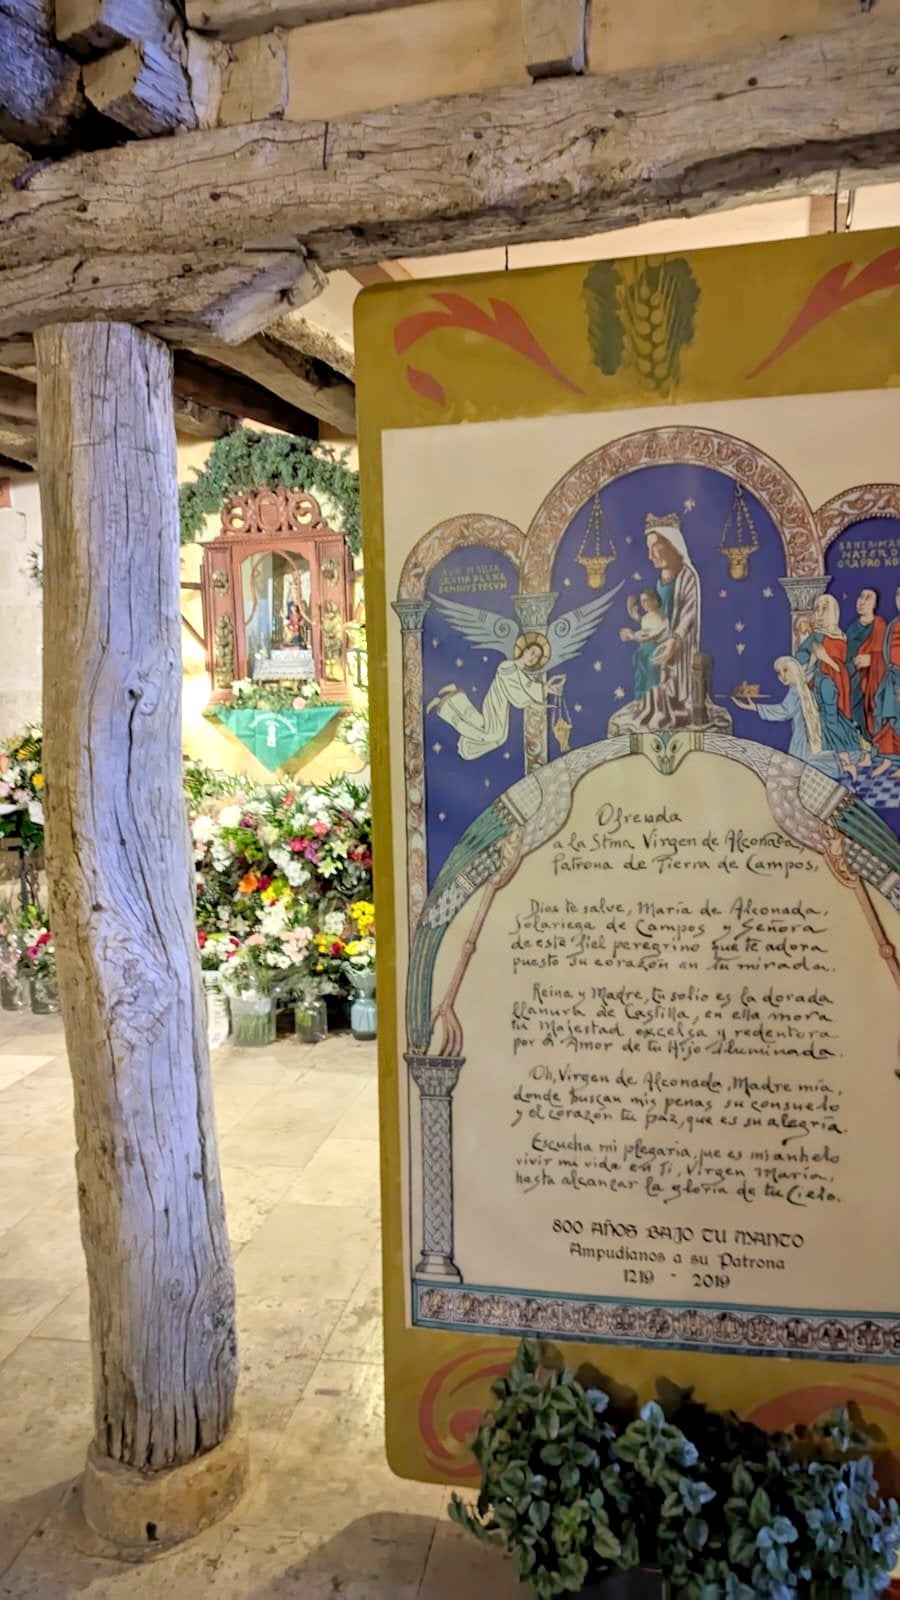 AVE MARIA
GRATIA PLENA
DOMINUS TECUM
SANTA MAR
MATER D
ORA PRO NO
Ofrenda
a la Stma Virgen de Alconada,
Patrona de Tierra de Campos,
Dios te salve, María de Alconada,
Solariega de Campos y Señora
de este fiel peregrino que te adora
puesto su corazón en tu mirada.
Reina y Madre, tu solio es la dorada
llanura de Castilla, en ella mora
tu Majestad excelsa y redentora
por el Amor de tu Hijo iluminada.
Oh, Virgen de Alconada, Madre mía,
donde buscan mis penas su consuelo
y el corazón tu paz, que es su alegría.
Escucha mi plegaria, que es mi anhelo
vivir mi vida en Ti, Virgen María,
hasta alcanzar la gloria de tu Cielo.
800 AÑOS BAJO TU MANTO
Ampudianos a su Patrona
1219 - 2019